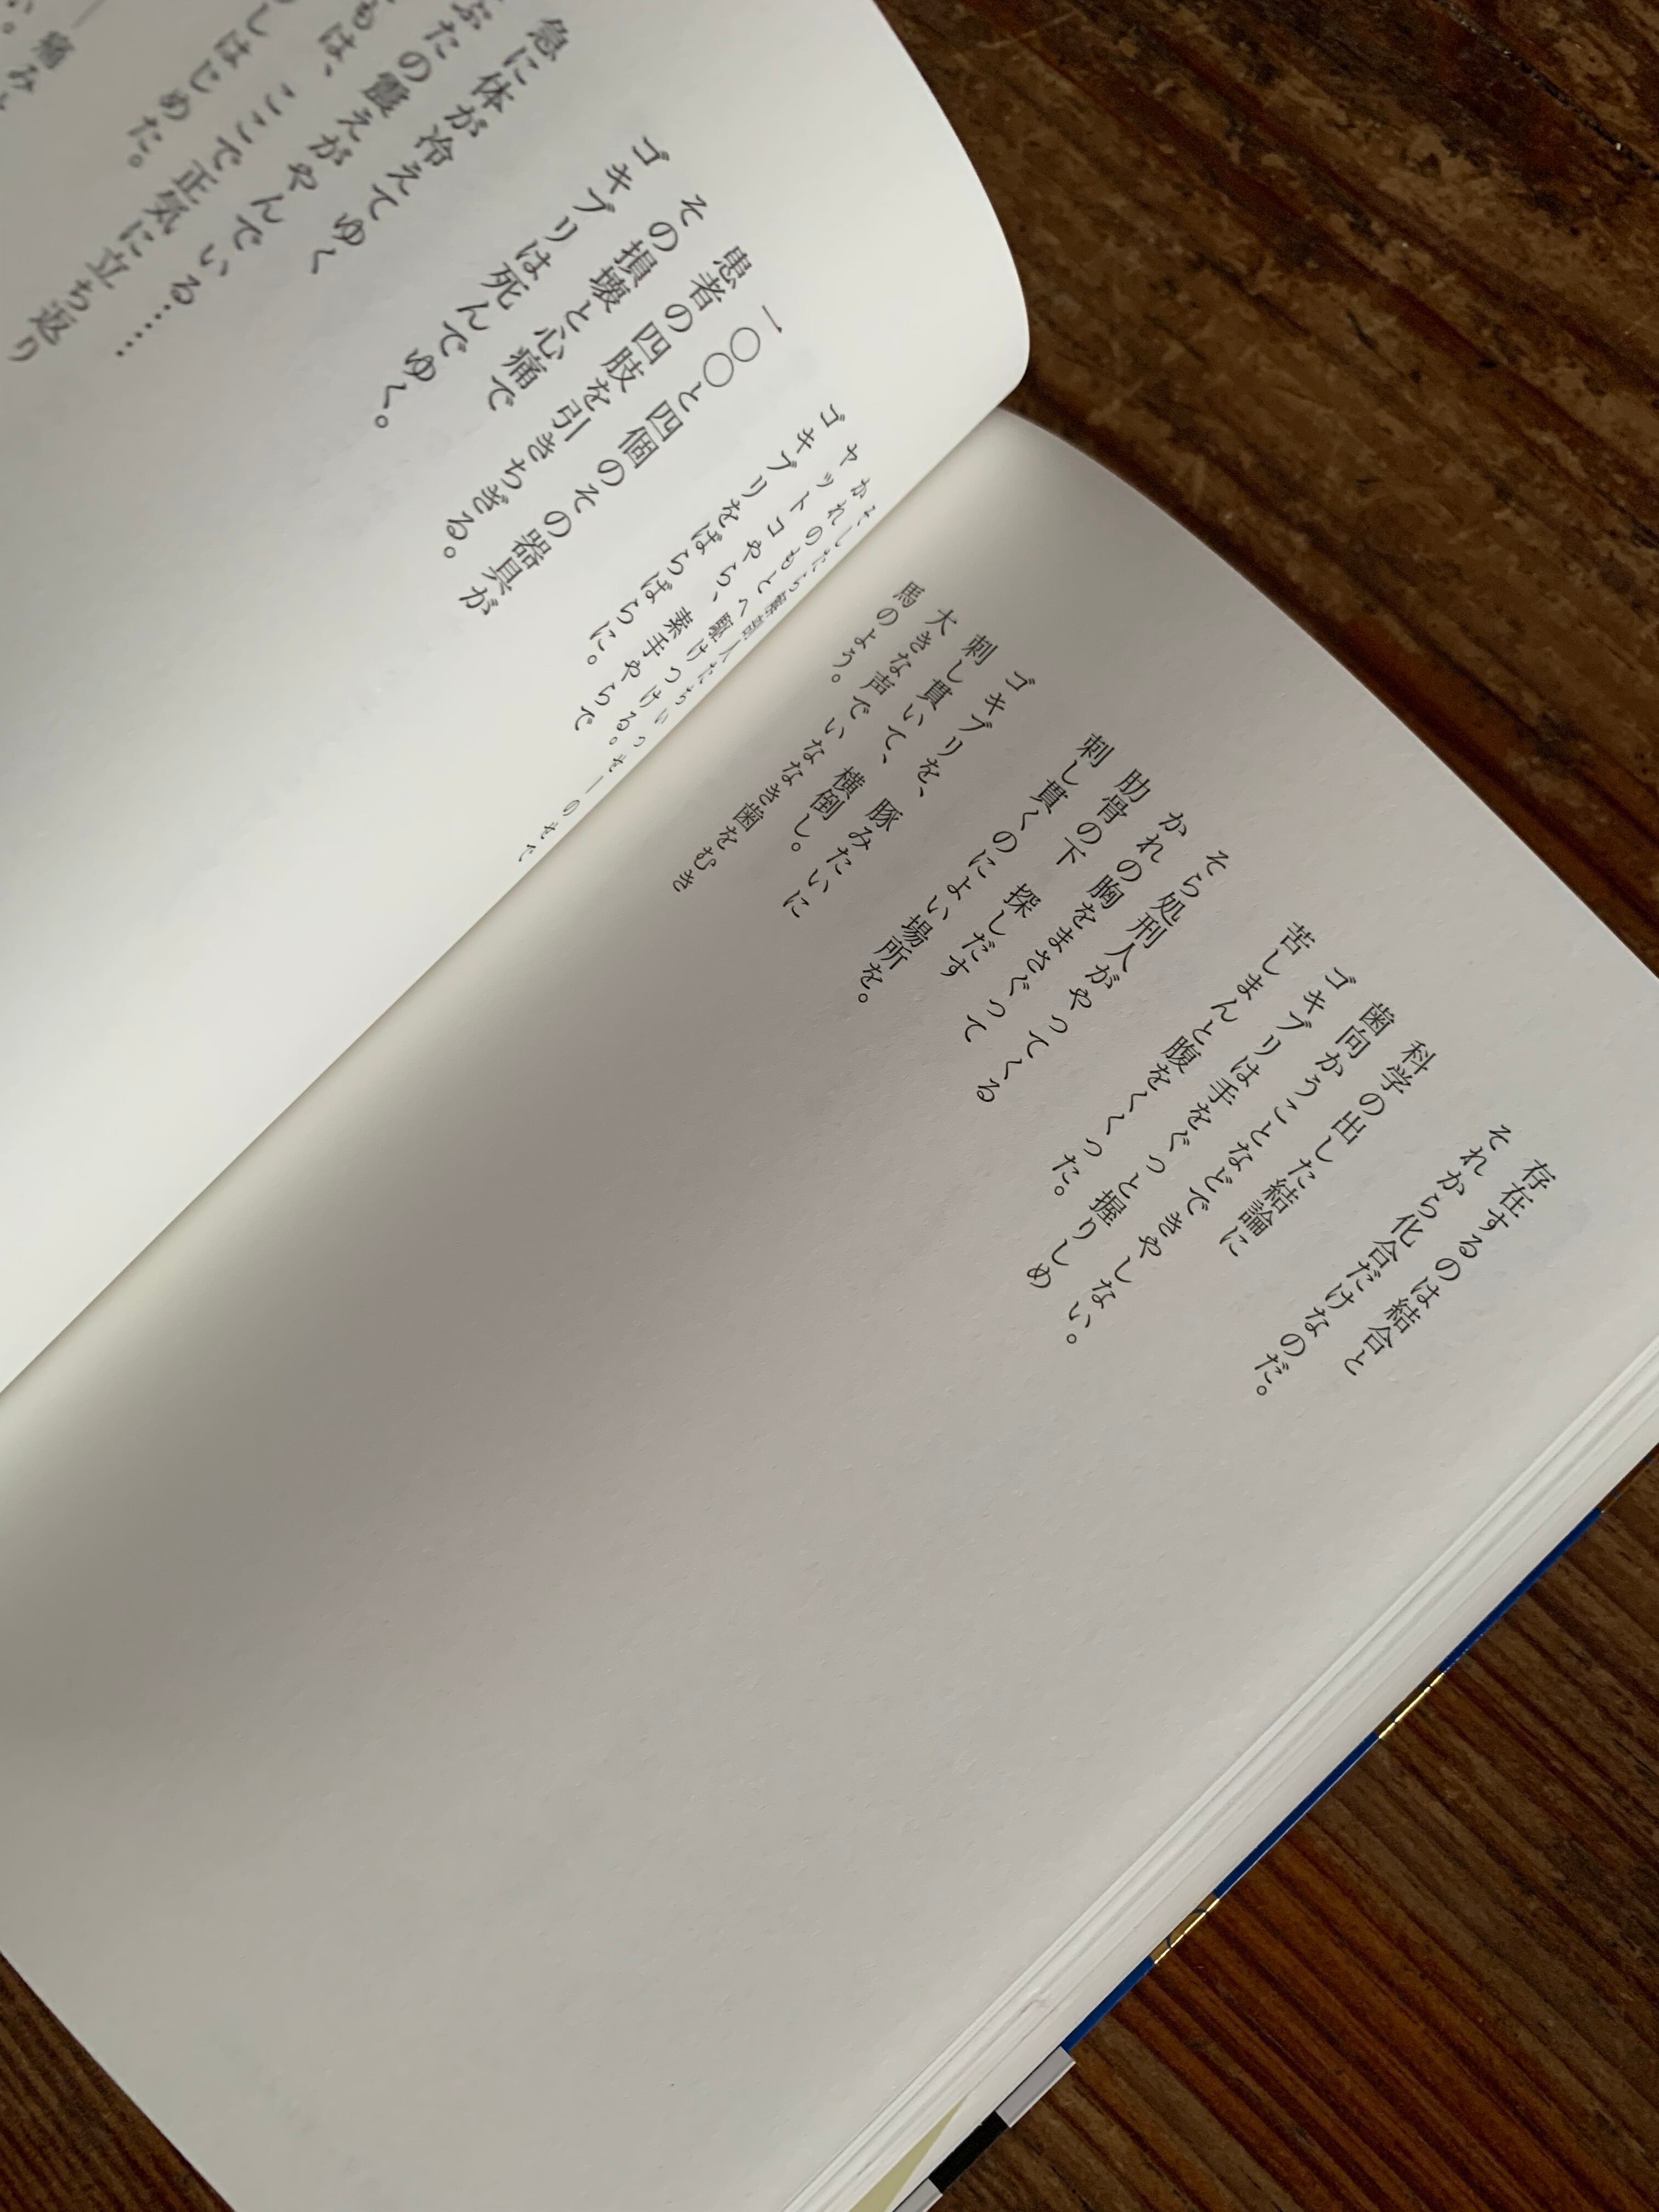 存在するのは結合と
それから化合だけなのだ。
科学の出した結論に
歯向かうことなどできやしない。
ゴキブリは手をぐっと握りしめ
苦しまんと腹をくくった。
そら処刑人がやってくる
かれの胸をまさぐって
肋骨の下　探しだす
刺し貫くのによい場所を。
ゴキブリを、豚みたいに
刺し貫いて、横倒し。
大きな声でいななき歯をむき
馬のよう。
そしたら解剖人たちいっせーのせで
かれのもとへ駆けつける。
ヤットコやら、素手やらで
ゴキブリをばらばらに。
一〇〇と四個のその器具が
患者の四肢を引きちぎる。
その損壊と心痛で
ゴキブリは死んでゆく。
急に体が冷えてゆく
ぶたの震えがやんでいる……
もは、ここで正気に立ち返り
しはじめた。
痛み
い。